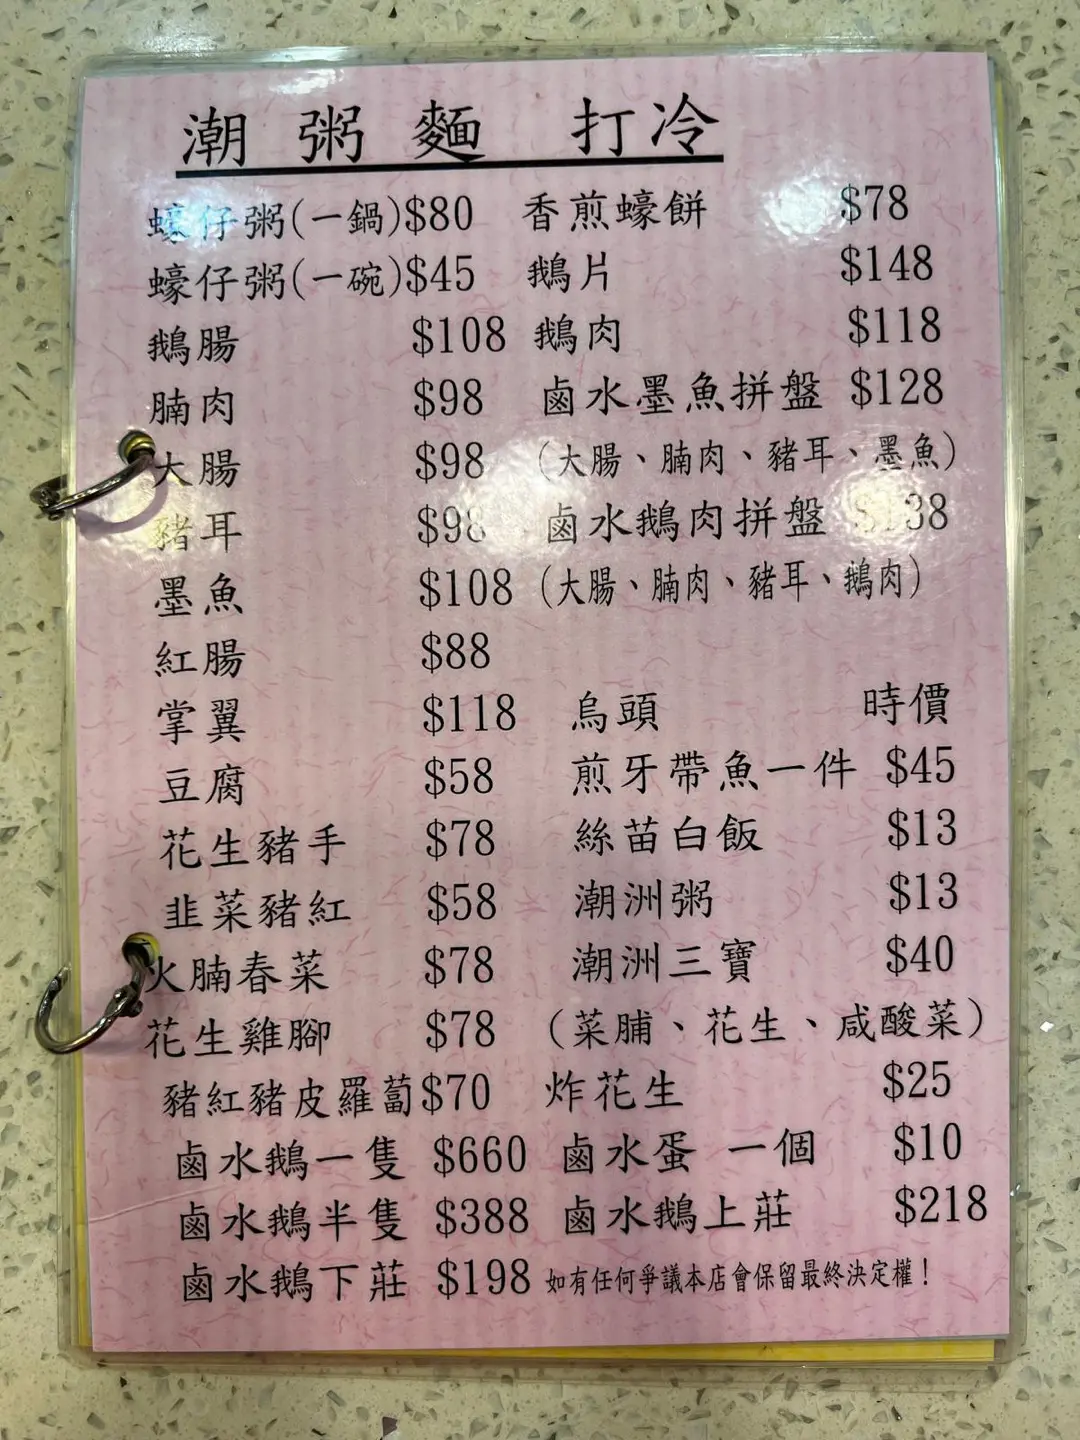 潮 粥 麵 打冷
蠔仔粥(一鍋)$80
蠔仔粥(一碗)$45
鵝腸 $108
腩肉 $98
大腸 $98
豬耳 $98
墨魚 $108
紅腸 $88
掌翼 $118
豆腐 $58
花生豬手 $78
韭菜豬紅 $58
火腩春菜 $78
花生雞腳 $78
豬紅豬皮羅蔔$70
鹵水鵝一隻 $660
鹵水鵝半隻 $388
鹵水鵝下莊 $198
香煎蠔餅 $78
鵝片 $148
鵝肉 $118
鹵水墨魚拼盤 $128
(大腸、腩肉、豬耳、墨魚)
鹵水鵝肉拼盤 $138
(大腸、腩肉、豬耳、鵝肉)
烏頭 時價
煎牙帶魚一件 $45
絲苗白飯 $13
潮洲粥 $13
潮洲三寶 $40
(菜脯、花生、咸酸菜)
炸花生 $25
鹵水蛋 一個 $10
鹵水鵝上莊 $218
如有任何爭議本店會保留最終決定權!